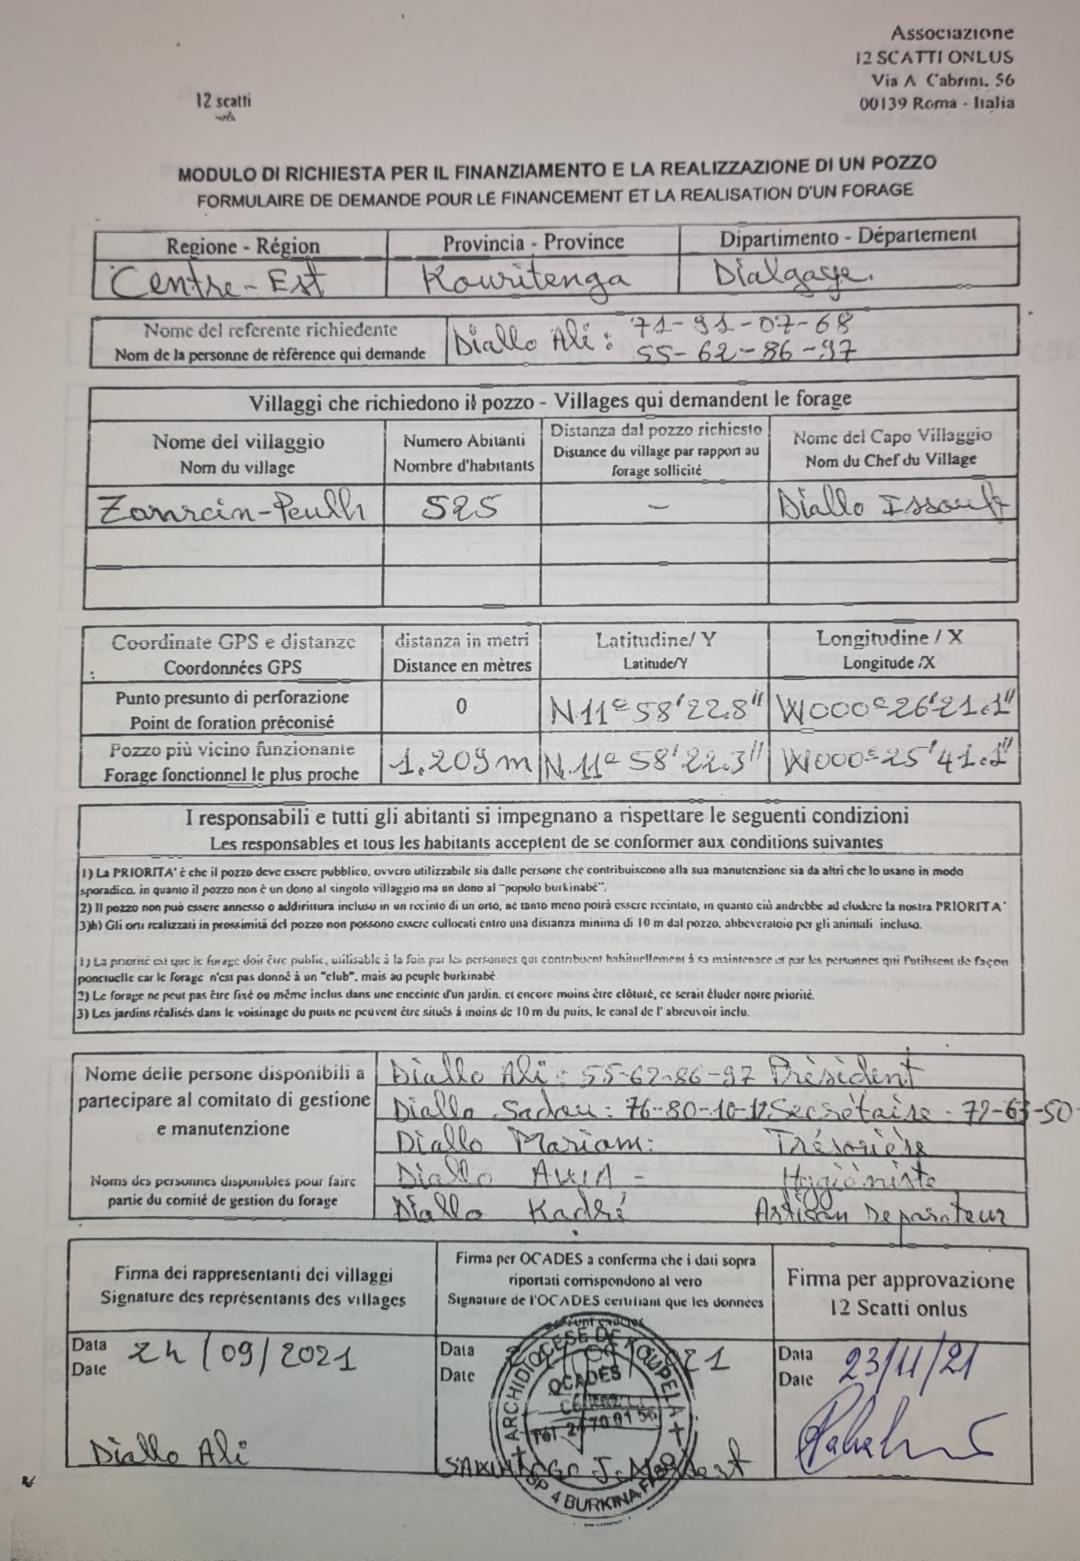 Associazione
12 SCATTI ONLUS
Via A Cabrini, 56
00139 Roma - Italia
12 scatti
MODULO DI RICHIESTA PER IL FINANZIAMENTO E LA REALIZZAZIONE DI UN POZZO
FORMULAIRE DE DEMANDE POUR LE FINANCEMENT ET LA REALISATION D'UN FORAGE
Regione - Région Provincia - Province Dipartimento - Département
Centre-Est Kouritenga Dialgaye.
Nome del referente richiedente
Nom de la personne de référence qui demande
Diallo Ali : 71-91-07-68
55-62-86-97
Villaggi che richiedono il pozzo - Villages qui demandent le forage
Nome del villaggio
Nom du village
Numero Abitanti
Nombre d'habitants
Distanza dal pozzo richiesto
Distance du village par rapport au
forage sollicité
Nome del Capo Villaggio
Nom du Chef du Village
525 - Diallo Issouf
Coordinate GPS e distanze
Coordonnées GPS
distanza in metri
Distance en mètres
Latitudine/ Y
Latitude/Y
Longitudine / X
Longitude /X
Punto presunto di perforazione
Point de foration préconisé
0 N11°58'22.8" W000°26'21.1"
Pozzo più vicino funzionante
Forage fonctionnel le plus proche
1.209m N.11° 58'22.3" W000°25'41.1"
I responsabili e tutti gli abitanti si impegnano a rispettare le seguenti condizioni
Les responsables et tous les habitants acceptent de se conformer aux conditions suivantes
1) La PRIORITA' è che il pozzo deve essere pubblico, ovvero utilizzabile sia dalle persone che contribuiscono alla sua manutenzione sia da altri che lo usano in modo
sporadico, in quanto il pozzo non è un dono al singolo villaggio ma un dono al "popolo burkinabé".
2) Il pozzo non può essere annesso o addirittura incluso in un recinto di un orto, né tanto meno potrà essere recintato, in quanto ciò andrebbe ad eludere la nostra PRIORITA'
3)b) Gli orti realizzati in prossimità del pozzo non possono essere collocati entro una distanza minima di 10 m dal pozzo, abbeveratoio per gli animali incluso.
1) La priorité est que le forage doit être public, utilisable à la fois par les personnes qui contribuent habituellement à sa maintenace et par les personnes qui l'utilisent de façon
ponctuelle car le forage n'est pas donné à un "club", mais au peuple burkinabè
2) Le forage ne peut pas être fisé ou même inclus dans une enceinte d'un jardin, et encore moins être clôturé, ce serait éluder notre priorité.
3) Les jardins réalisés dans le voisinage du puits ne peuvent être situés à moins de 10 m du puits, le canal de l' abreuvoir inclu.
Nome delle persone disponibili a
partecipare al comitato di gestione
e manutenzione
Noms des personnes disponibles pour faire
partie du comité de gestion du forage
Diallo Ali : 55-62-86-97 Président
Diallo Sadou : 76-80-10-12 Secrétaire - 72-63-50-
Diallo Mariam : Trésorière
Diallo Awa - Hygièniste
Diallo Kadré Artisan réparateur
Firma dei rappresentanti dei villaggi
Signature des représentants des villages
Firma per OCADES a conferma che i dati sopra
riportati corrispondono al vero
Signature de l'OCADES certifiant que les données
Firma per approvazione
12 Scatti onlus
Data
Date
24/09/2021
Diallo Ali
Data
Date
21
ARCHIDIOCESE DE KOUPELA
OCADES
BP 4 BURKINA FASO
Data
Date
23/11/21